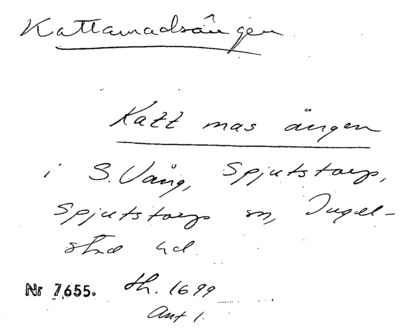 Kattamadsängen
Katt mas ängen
i S. Vång, Spjutstorp,
Spjutstorp sn, Ingel-
stad hd.
Nr 7655. th. 1699
Ant 1.